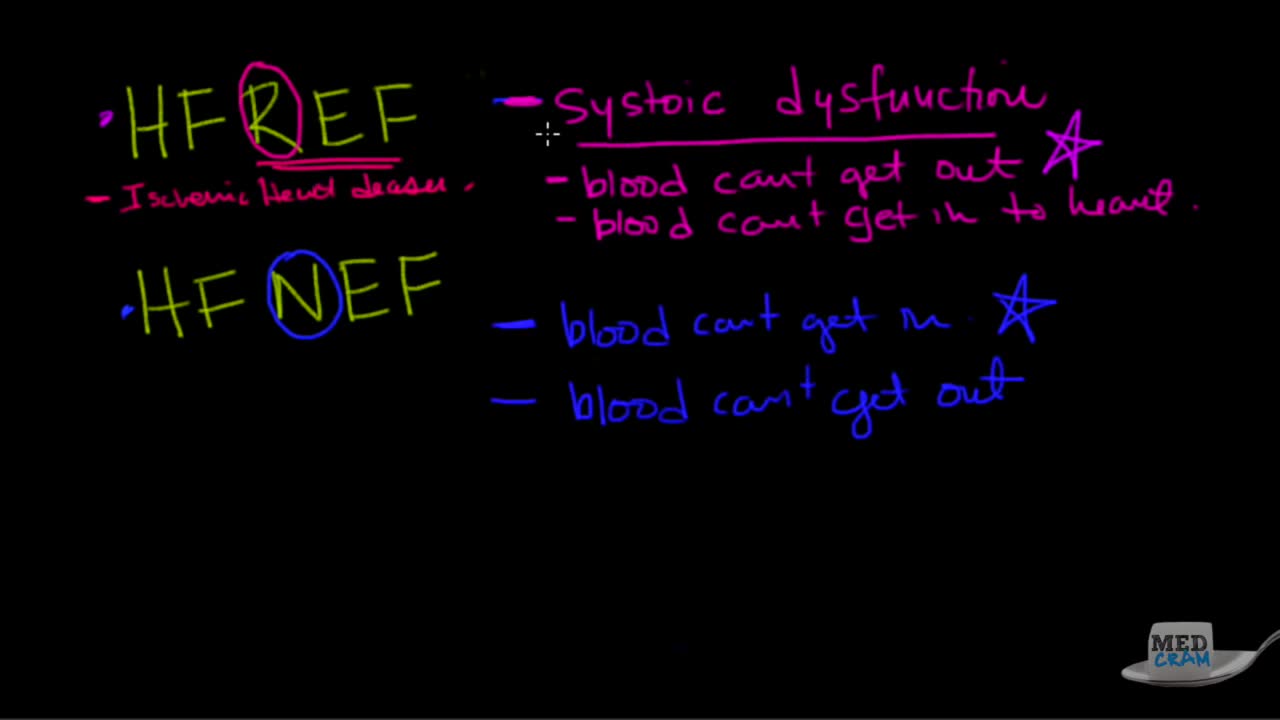 HFREF
- Systoic dysfunction
- Ischemic Heart disease.
- blood can't get out
- blood can't get in to heart.
HFNEF
- blood can't get in.
- blood can't get out
MED
CRAM